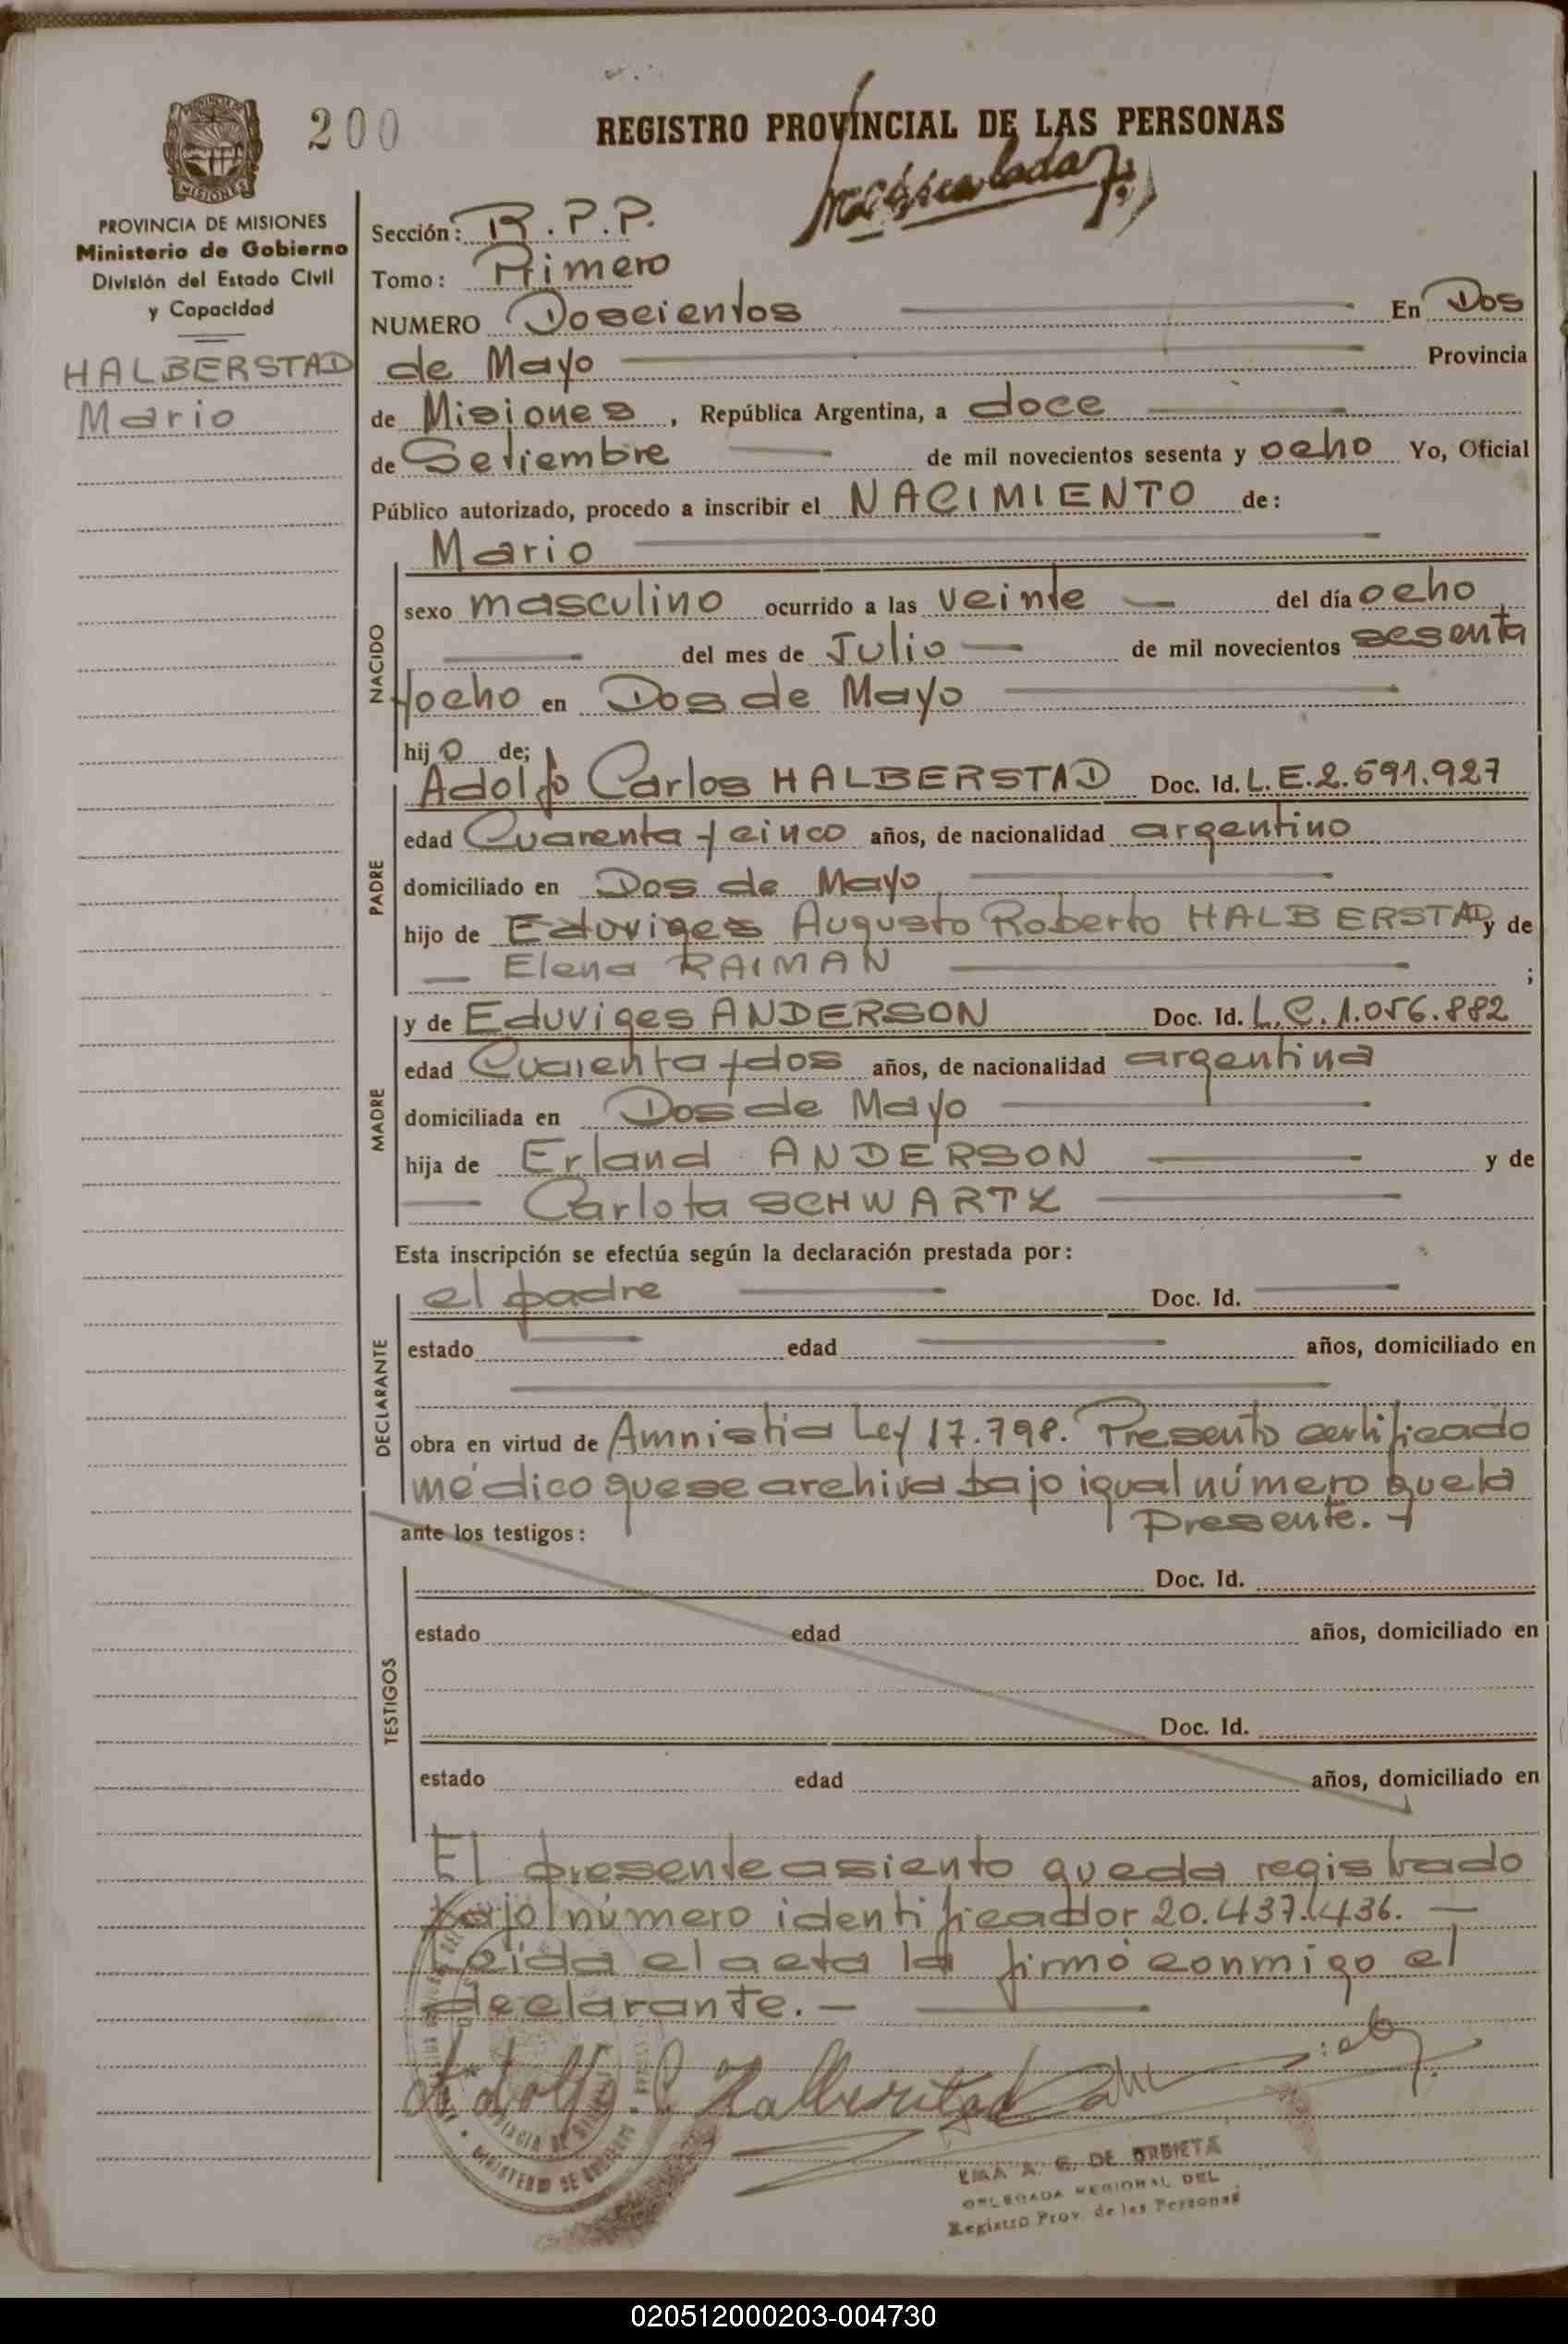 200
REGISTRO PROVINCIAL DE LAS PERSONAS
MISIONES
PROVINCIA DE MISIONES
Ministerio de Gobierno
División del Estado Civil
y Capacidad
HALBERSTAD
Mario
Sección: R.P.P.
Tomo: Primero
NUMERO Doscientos En Dos
de Mayo Provincia
de Misiones, República Argentina, a doce
de Setiembre de mil novecientos sesenta y ocho Yo, Oficial
Público autorizado, procedo a inscribir el NACIMIENTO de:
NACIDO
Mario
sexo masculino ocurrido a las veinte del día ocho
del mes de Julio de mil novecientos sesenta
y ocho en Dos de Mayo
hijo de;
PADRE
Adolfo Carlos HALBERSTAD Doc. Id. L.E.2.591.927
edad Cuarenta y cinco años, de nacionalidad argentino
domiciliado en Dos de Mayo
hijo de Eduviges Augusto Roberto HALBERSTAD y de
Elena RAIMAN ;
MADRE
y de Eduviges ANDERSON Doc. Id. L.C.1.056.882
edad Cuarenta y dos años, de nacionalidad argentina
domiciliada en Dos de Mayo
hija de Erland ANDERSON y de
Carlota SCHWARTZ
Esta inscripción se efectúa según la declaración prestada por:
DECLARANTE
el padre Doc. Id.
estado edad años, domiciliado en
obra en virtud de Amnistia Ley 17.798. Presento certificado
médico que se archiva bajo igual número que la
presente.
ante los testigos:
TESTIGOS
Doc. Id.
estado edad años, domiciliado en
Doc. Id.
estado edad años, domiciliado en
El presente asiento queda registrado
bajo número identificador 20.437.436.
Leida el acta la firmó conmigo el
declarante.-
Adolfo C. Halberstad
MINISTERIO DE
A. G. DE URBIETA
DELEGADA REGIONAL DEL
Registro Prov. de las Personas
020512000203-004730